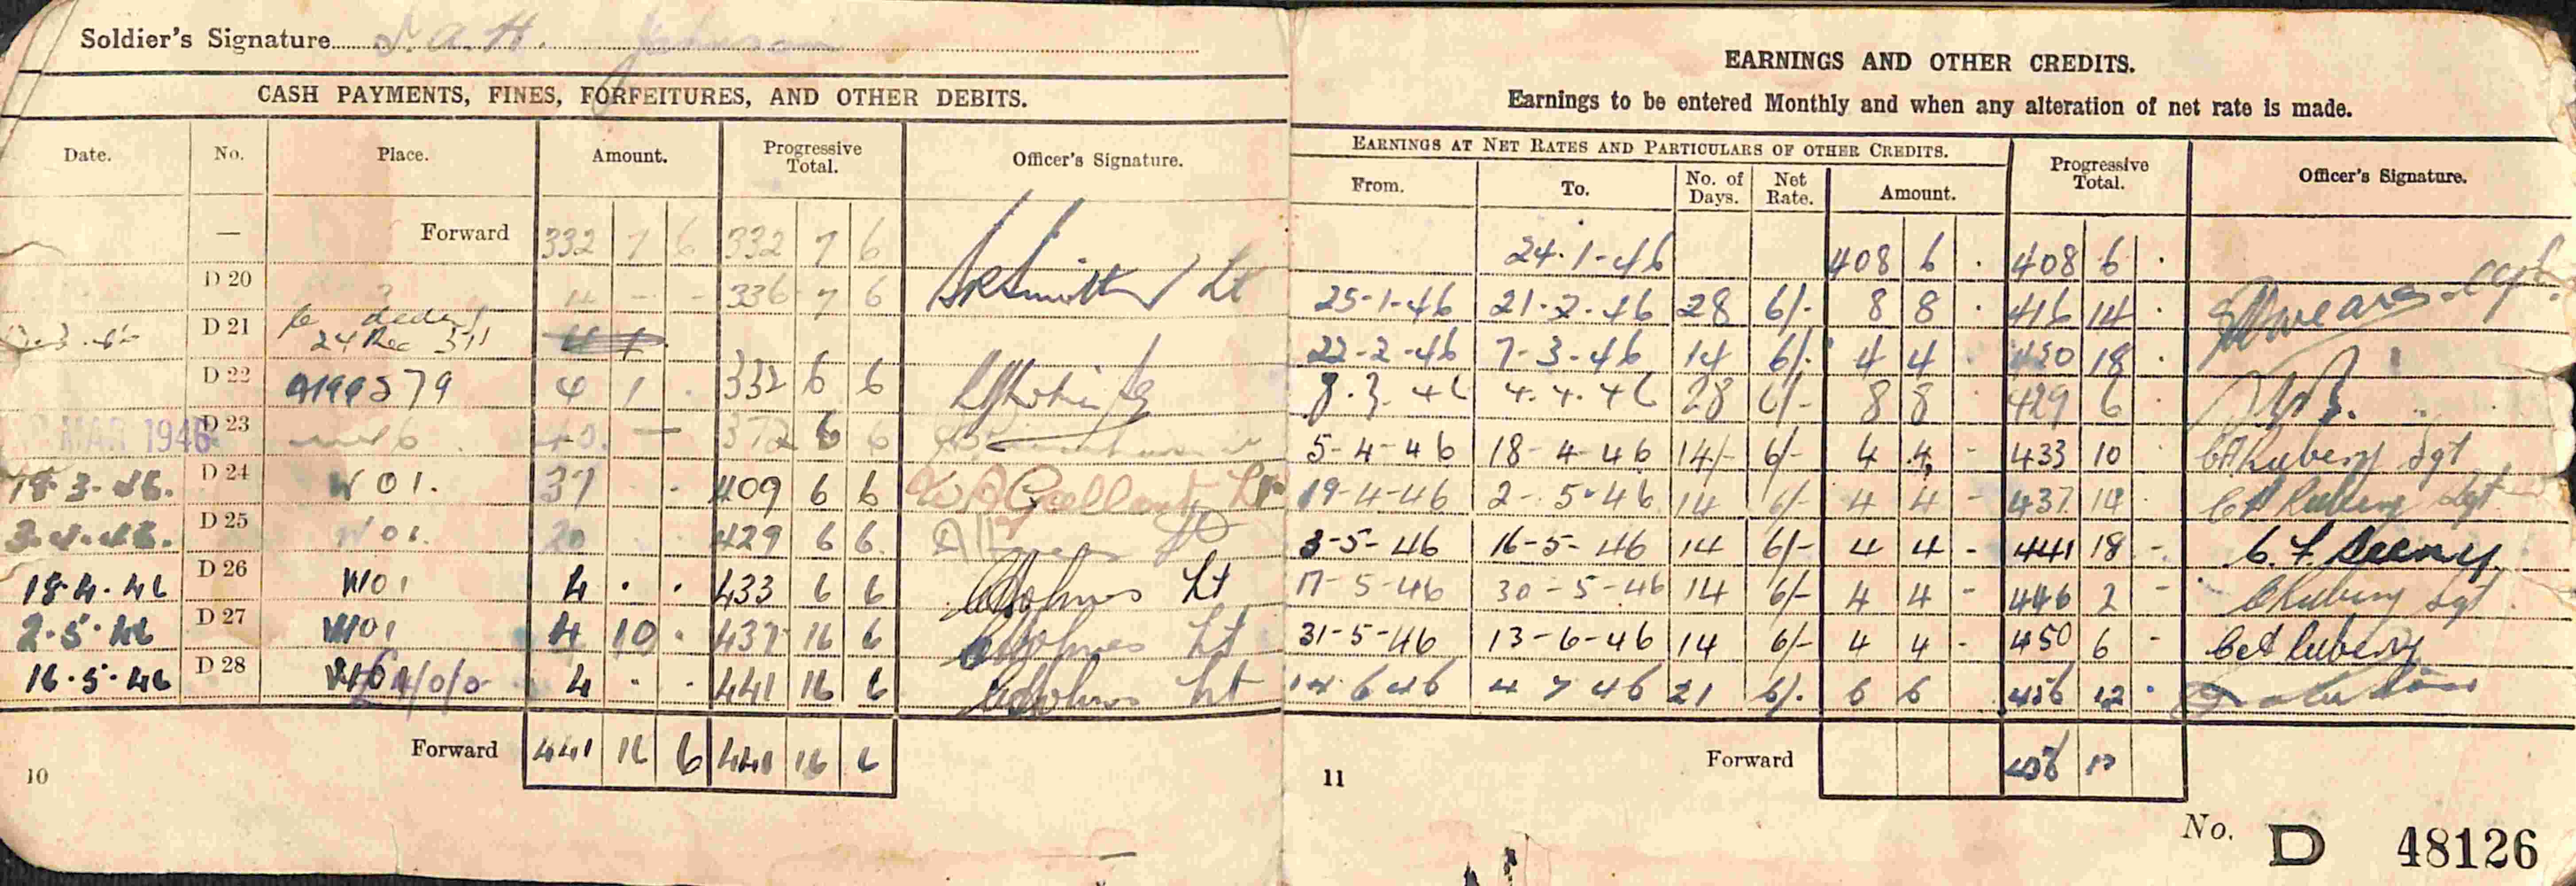 Soldier's Signature A. H. Johnson
CASH PAYMENTS, FINES, FORFEITURES, AND OTHER DEBITS.
Date. No. Place. Amount. Progressive Total. Officer's Signature.
— Forward 332 7 6 332 7 6
D 20 4 - - 336 7 6 Smith Lt
D 21 24 Dec 4 1
D 22 4 1 . 332 6 6
MAR 1946 D 23 40. — 372 6 6
18-3-46. D 24 W01. 37 . . 409 6 6 Gallant Lt
3.4.46. D 25 W01. 20 . . 429 6 6
18.4.46 D 26 W01 4 . . 433 6 6 Johns Lt
2.5.46 D 27 W01 4 10 . 437 16 6 Johns Lt
16.5.46 D 28 4 . . 441 16 6 Johns Lt
Forward 441 16 6 441 16 6
10
EARNINGS AND OTHER CREDITS.
Earnings to be entered Monthly and when any alteration of net rate is made.
EARNINGS AT NET RATES AND PARTICULARS OF OTHER CREDITS. Progressive Total. Officer's Signature.
From. To. No. of Days. Net Rate. Amount.
24.1-46 408 6 . 408 6 .
25-1-46 21-2-46 28 6/- 8 8 . 416 14 . Capt.
22-2-46 7-3-46 14 6/- 4 4 . 18 .
8.3.46 4.4.46 28 6/- 8 8 429 6
5-4-46 18-4-46 14/- 6/- 4 4 - 433 10 Rubery Sgt
19-4-46 2-5-46 14 6/- 4 4 - 437 14 Rubery Sgt
3-5-46 16-5-46 14 6/- 4 4 - 441 18 -
17-5-46 30-5-46 14 6/- 4 4 - 446 2 - Rubery Sgt
31-5-46 13-6-46 14 6/- 4 4 - 450 6 - Rubery
14 6 46 4 7 46 21 6/- 6 6 456 12 .
Forward 456 12
11
No. D 48126